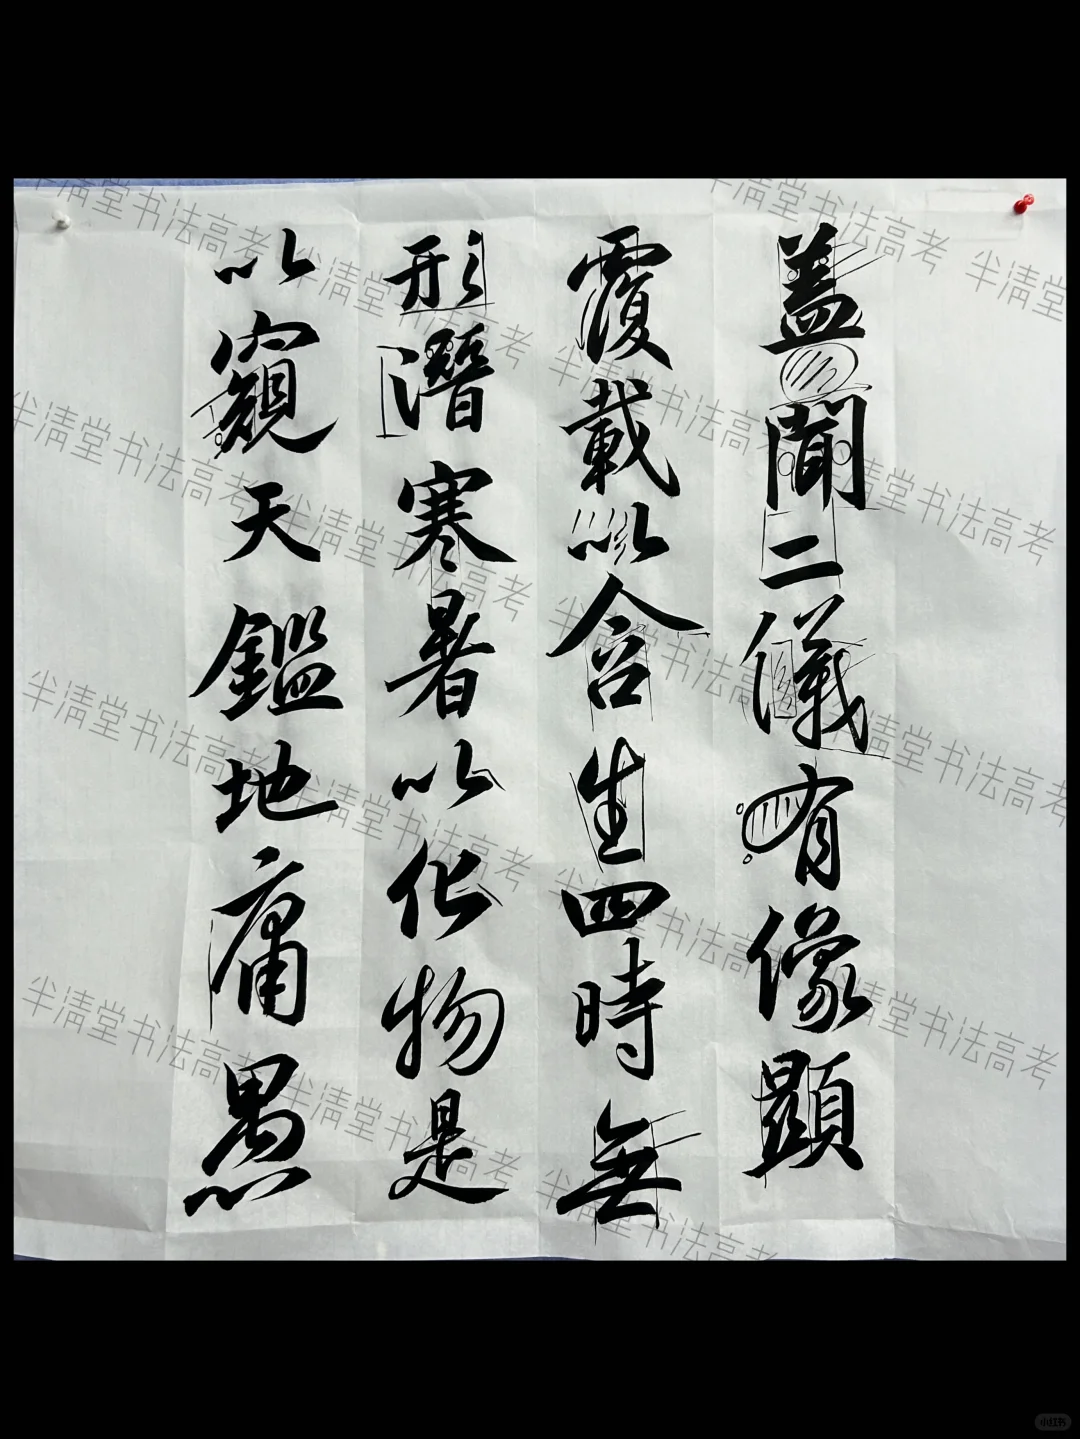 蓋聞二儀有像顯
覆載以含生四時無
形潛寒暑以化物是
以窺天鑑地庸愚
半清堂书法高考
小红书